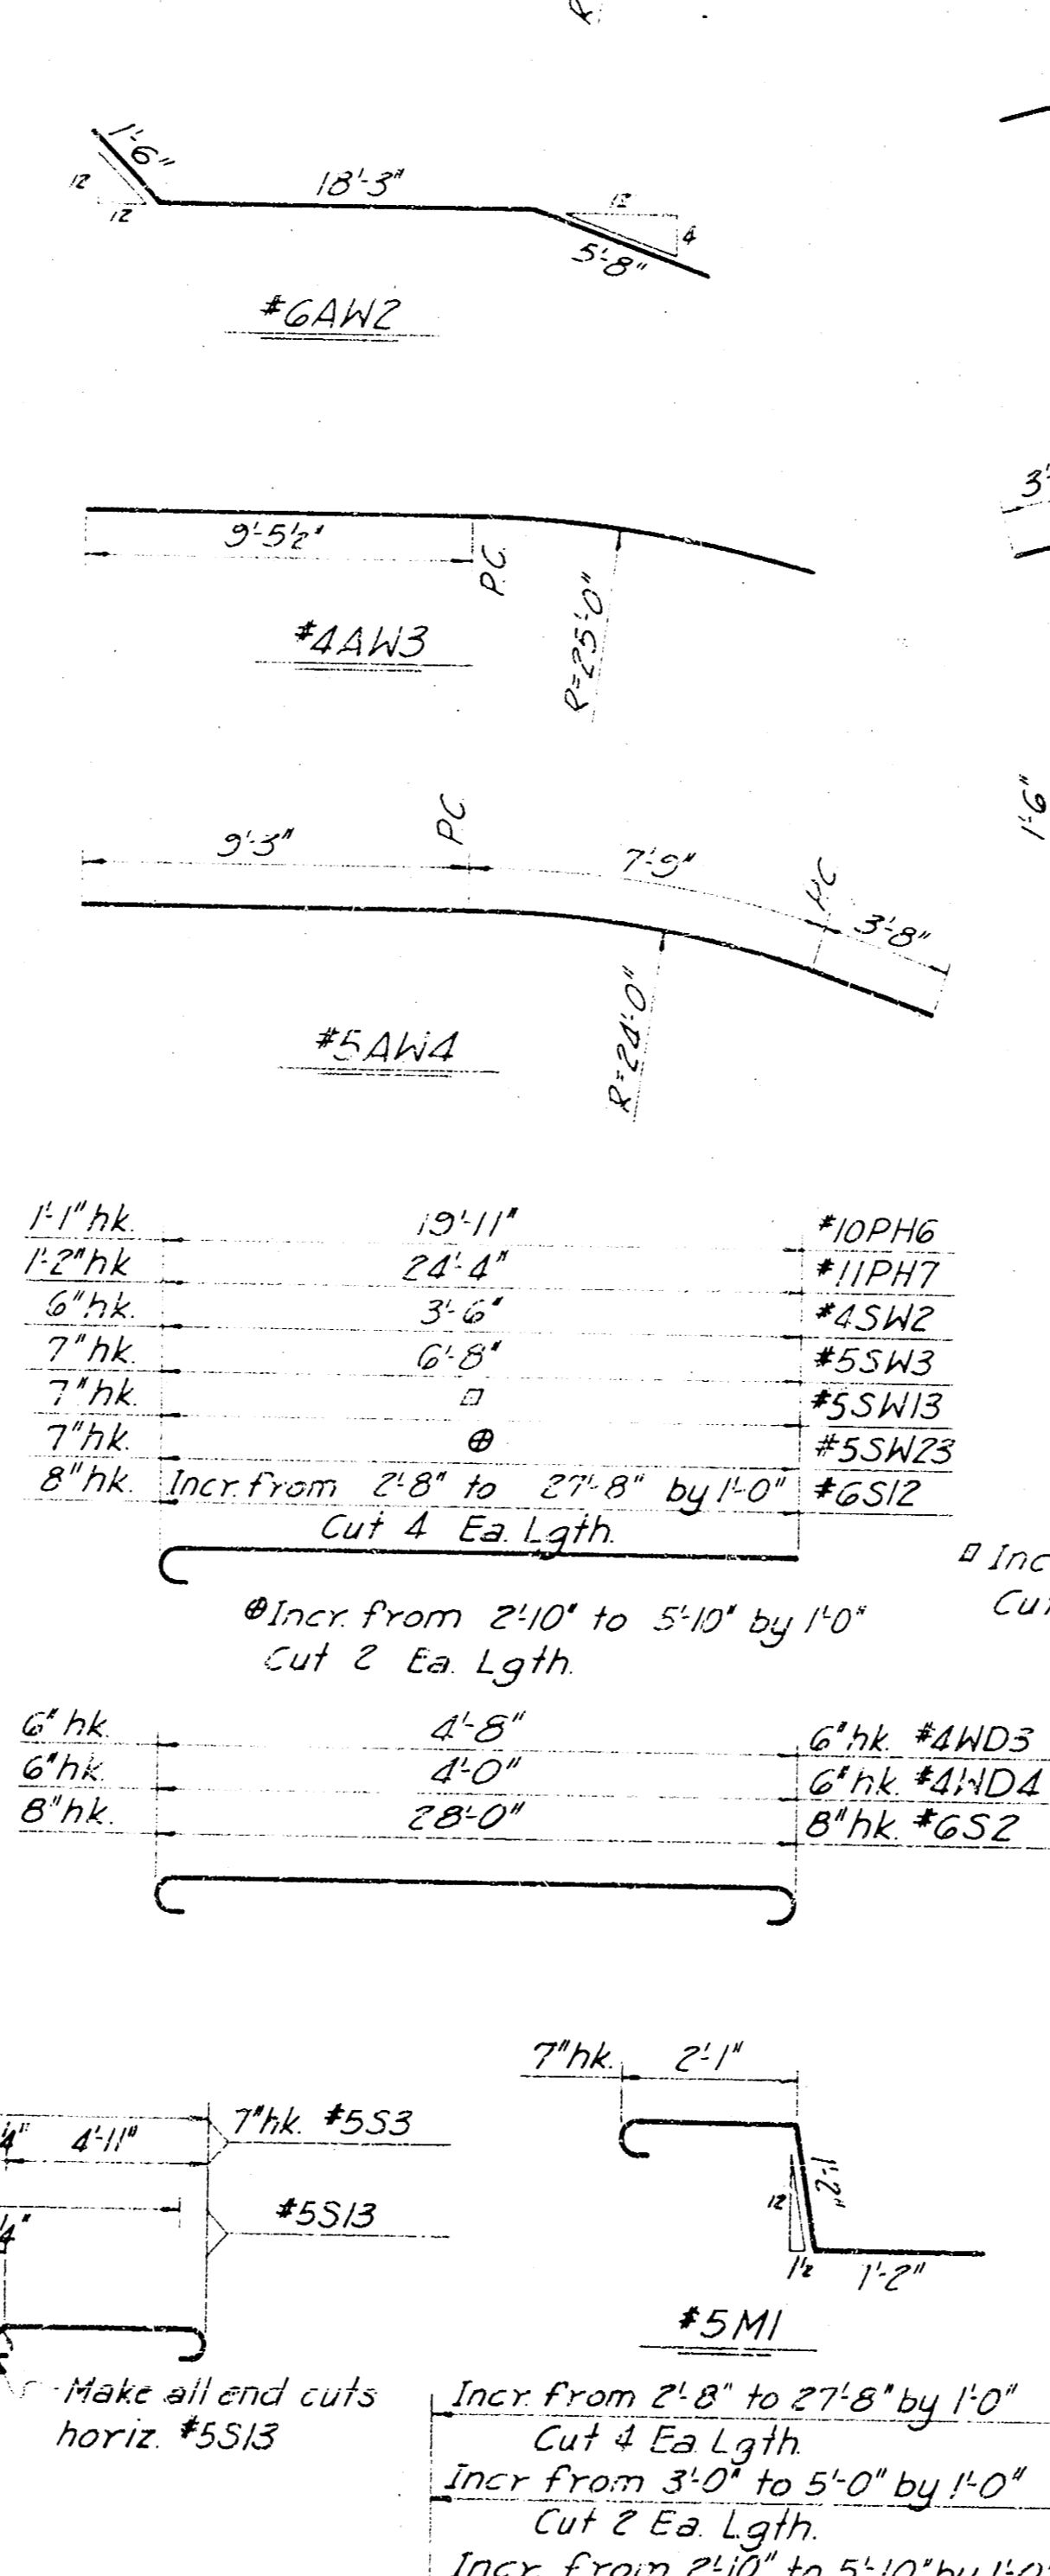 R.
1'-6"
12
12
18'-3"
12
4
5'-8"
#6AW2
9'-5½"
P.C.
R=25'-0"
#4AW3
3'-
1'-6"
9'-3"
P.C.
7'-9"
P.C.
3'-8"
R=24'-0"
#5AW4
1'-1" hk. 19'-11" #10PH6
1'-2" hk 24'-4" #11PH7
6" hk. 3'-6" #4SW2
7" hk. 6'-8" #5SW3
7" hk. □ #5SW13
7" hk. ⊕ #5SW23
8" hk. Incr. from 2'-8" to 27'-8" by 1'-0" #6S12
Cut 4 Ea. Lgth.
□ Inc
Cut
⊕ Incr. from 2'-10" to 5'-10" by 1'-0"
Cut 2 Ea. Lgth.
6" hk. 4'-8" 6" hk. #4WD3
6" hk. 4'-0" 6" hk. #4WD4
8" hk. 28'-0" 8" hk. #6S2
7" hk. #5S3
4" 4'-11"
#5S13
4"
Make all end cuts
horiz. #5S13
7" hk. 2'-1"
1'-2"
12
1½
1'-2"
#5M1
Incr. from 2'-8" to 27'-8" by 1'-0"
Cut 4 Ea. Lgth.
Incr from 3'-0" to 5'-0" by 1'-0"
Cut 2 Ea. Lgth.
Incr. from 2'-10" to 5'-10" by 1'-0"